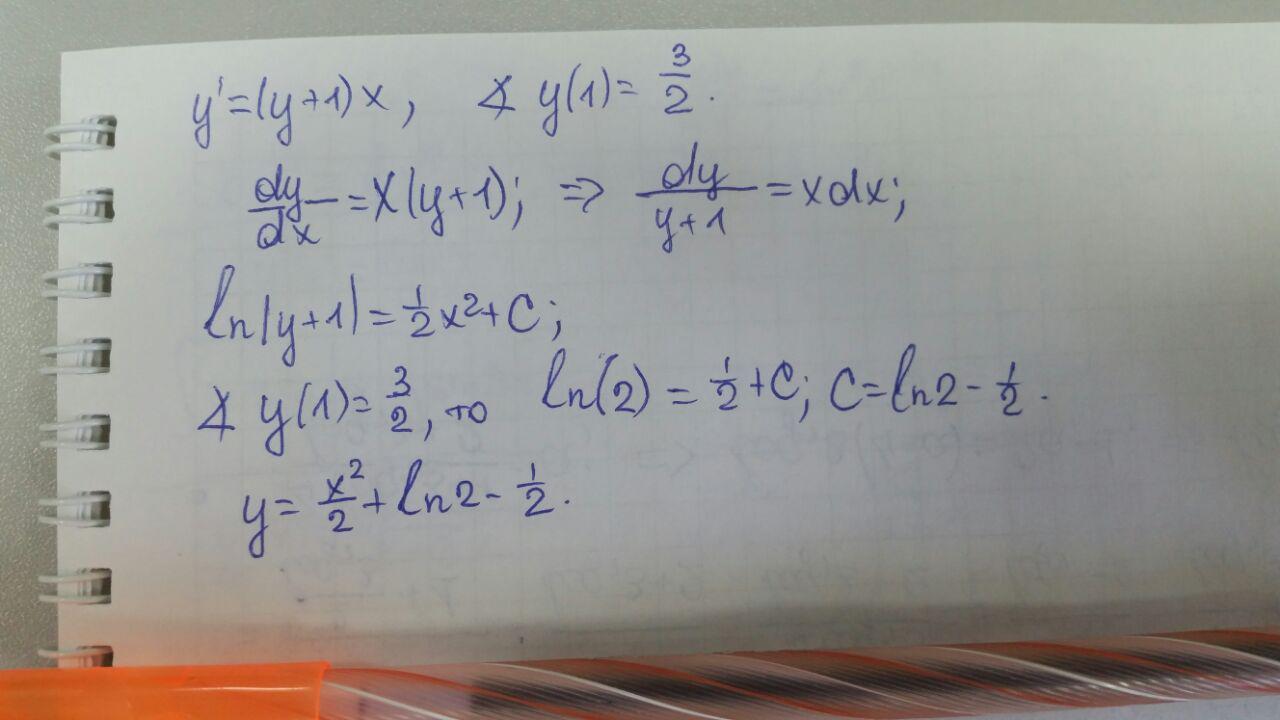 y' = (y+1)x, ∡ y(1) = 3/2.
dy/dx = x(y+1); ⇒ dy/(y+1) = xdx;
ln|y+1| = 1/2 x² + C;
∡ y(1) = 3/2, то ln(2) = 1/2 + C; C = ln2 - 1/2.
y = x²/2 + ln2 - 1/2.